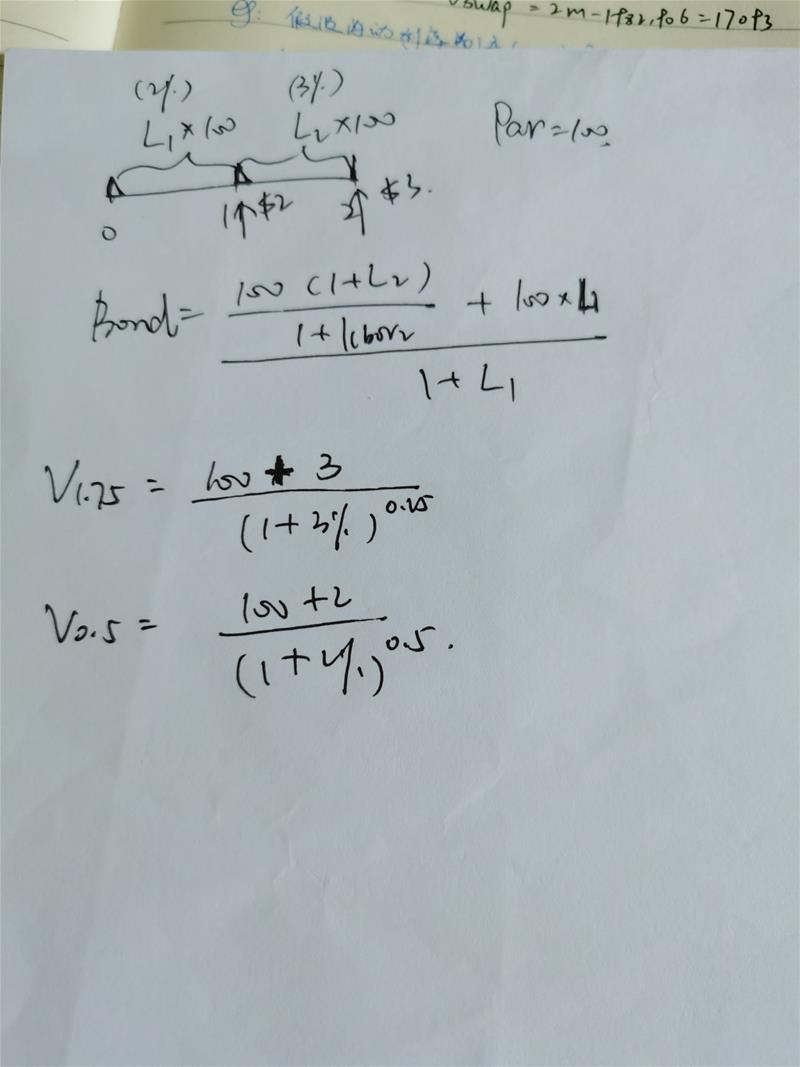 Vswap = 2m - 1982,906 = 17093
(2%) (3%)
L₁ × 100 L₂ × 100 Par = 100.
0 1 $2 2 $3.
Bond = (100 (1+L₂) / (1+libor₂) + 100 × L₁) / (1+L₁)
V1.75 = (100 + 3) / (1+3%)^0.25
V0.5 = (100+2) / (1+2%)^0.5.